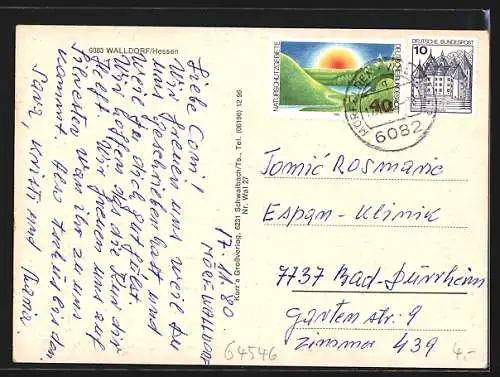 6083 WALLDORF/Hessen
Liebe Comi!
Wir freuen uns weil du
uns geschrieben hast und
weil es dich gut fühlt
Wir hoffen das die Kur dir
Helft. Wir freuen uns auf
Silvester wan ihr zu uns
kommt. Also tschüs bis dan
Dani, Kristl und Mama.
17.11.80
MÖRF-WALLDORF
Korr's Großverlag, 6231 Schwalbach/Ts., Tel. (06196) 12 95
Nr. Wal 27
NATURSCHUTZGEBIETE
DEUTSCHE BUNDESPOST
40
DEUTSCHE BUNDESPOST
10
6082
Tomić Rosmarie
Espan-Klinik
7737 Bad-Dürrheim
Garten str. 9
Zimmer 439
64546
4,-